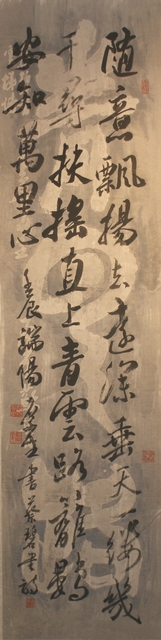 隨意飄揚去遠深垂天一縷幾
千尋扶搖直上青雲路籬鷃
安知萬里心 壬辰端陽 書蔡碧吟詩